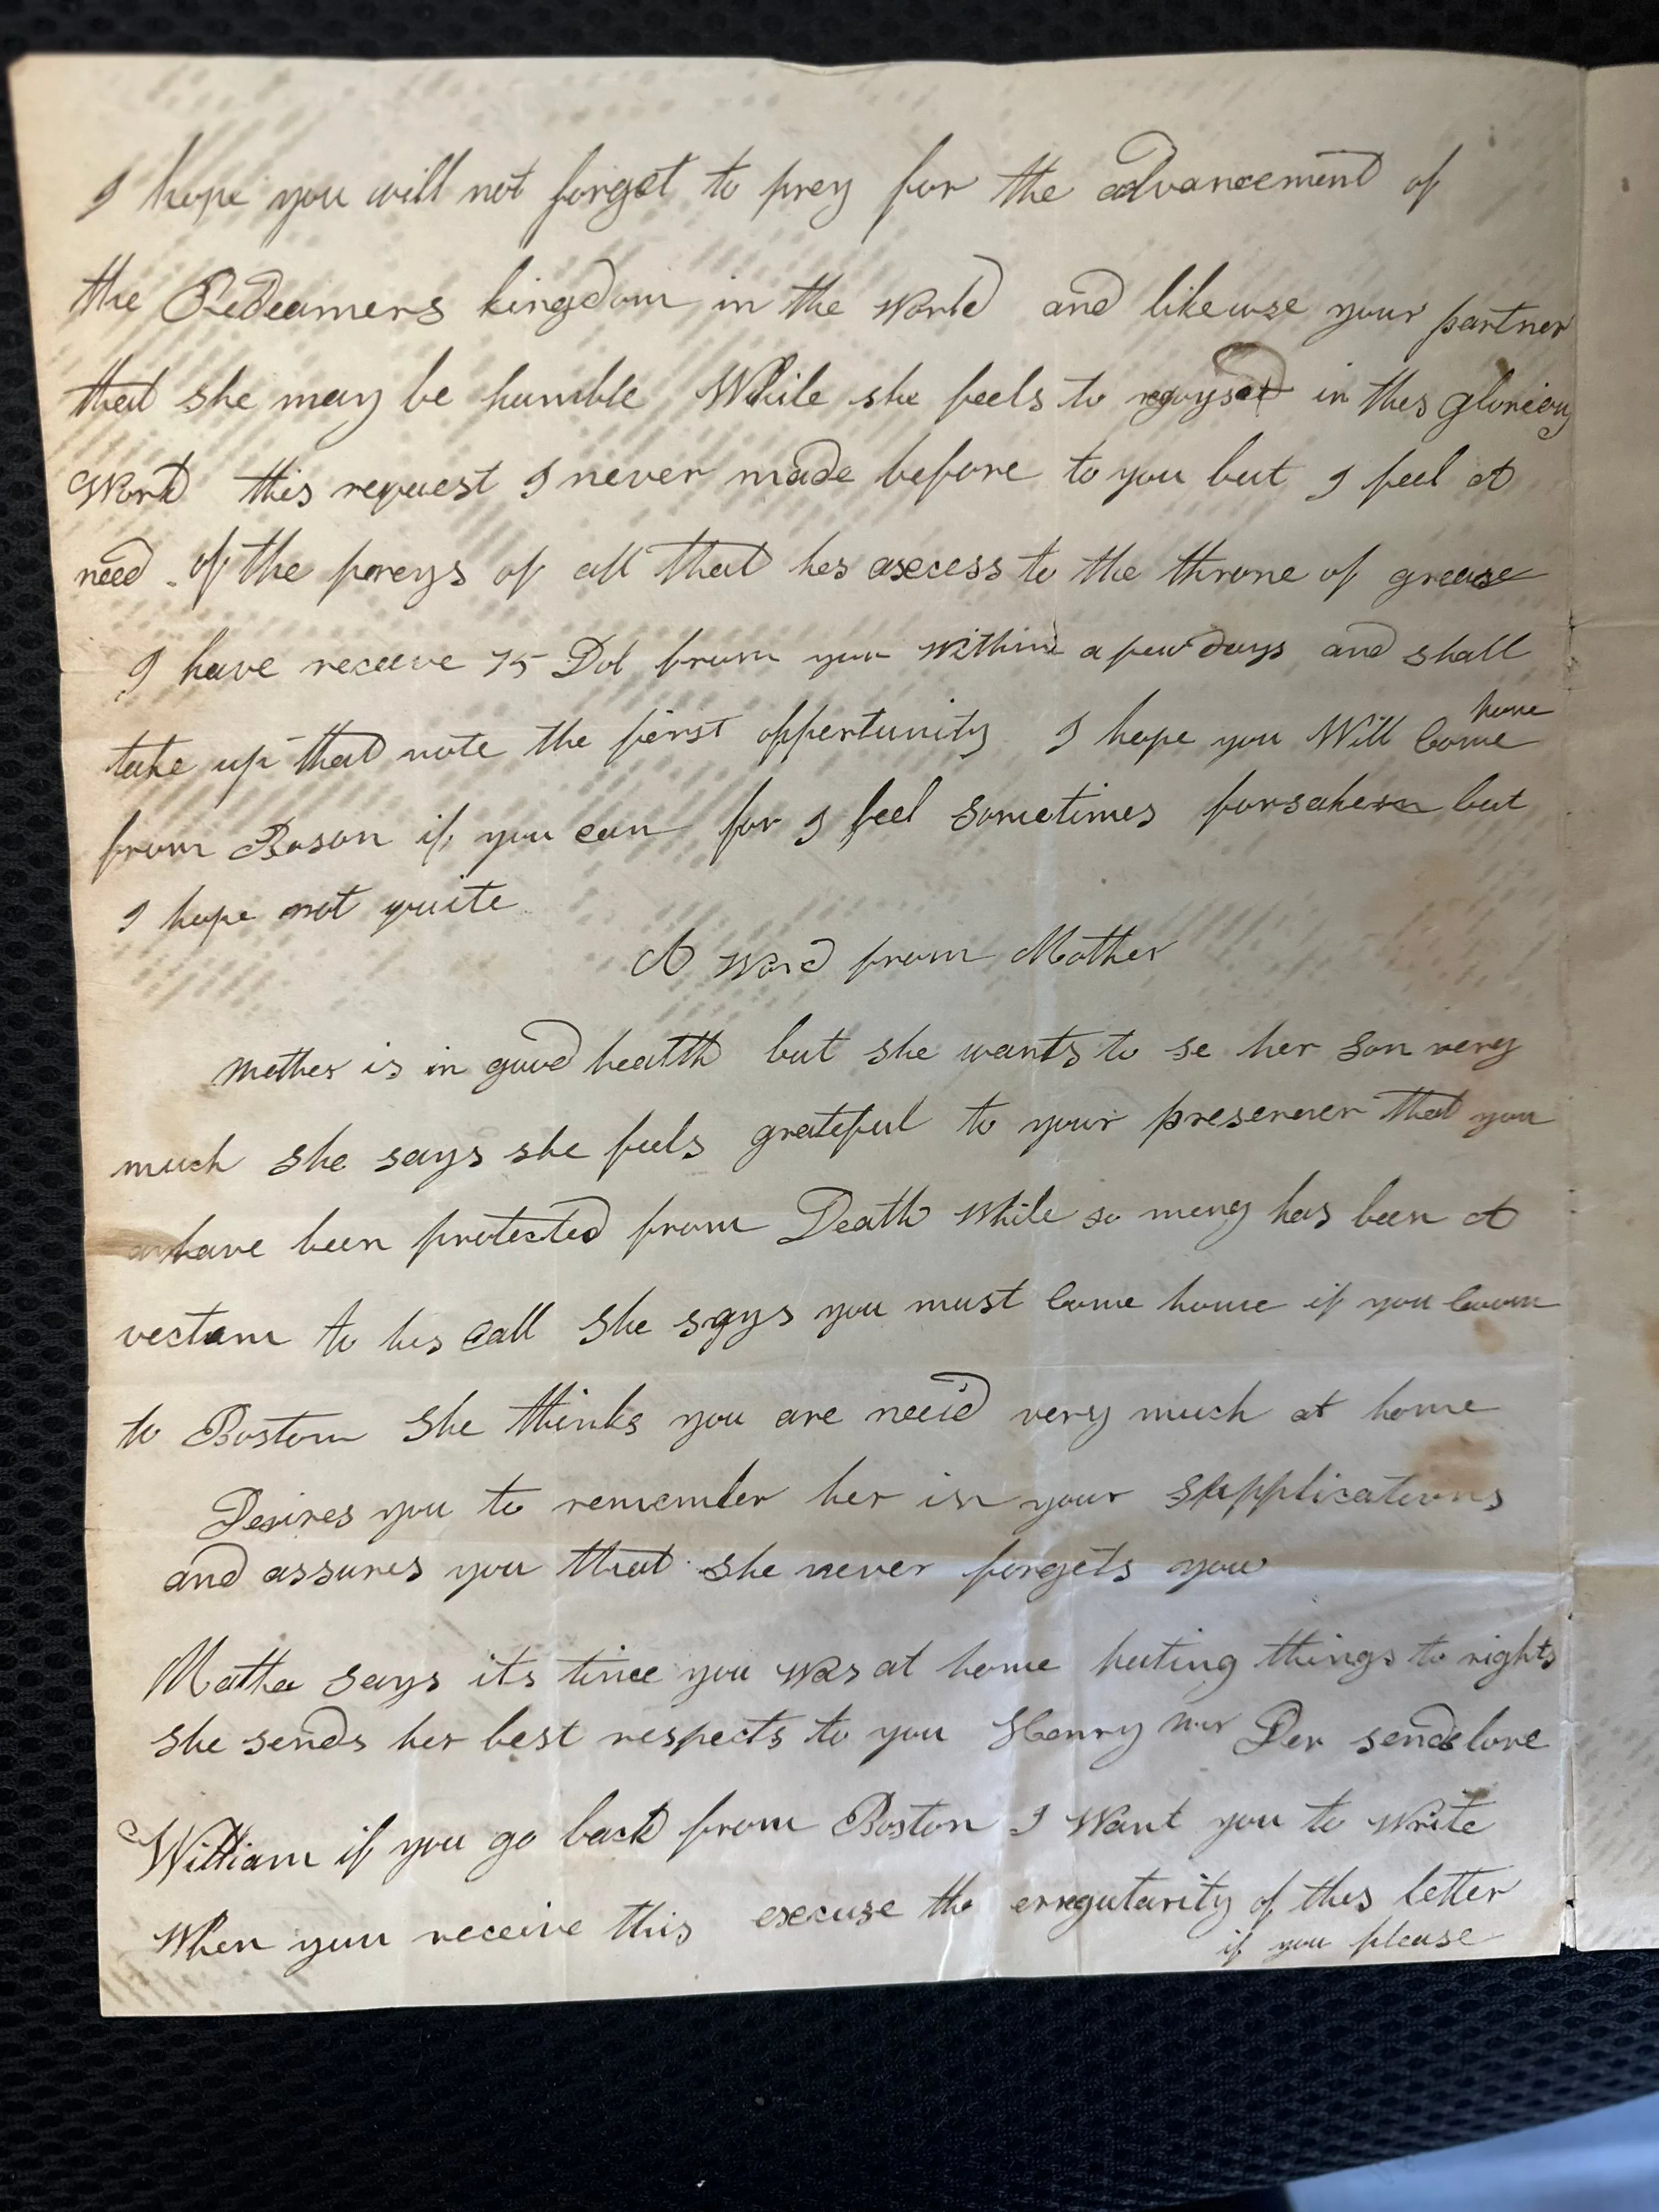 I hope you will not forget to prey for the advancement of
the Redeamers kingdom in the World and likewise your partner
that she may be humble While she feels to in this glorious
Work this request I never made before to you but I feel A
need of the preys of all that hes axcess to the throne of grease
I have receive 75 Dol from you within a few days and shall
take up that note the first oppertunity I hope you Will Come home
from Boson if you can for I feel sometimes forsaken but
I hope not quite
A word from Mother
Mother is in good health but she wants to se her son very
much she says she feels grateful to your preserver that you
have been protected from Death While so meny has been A
vectam to his Call She says you must Come home if you Coom
to Boston She thinks you are need very much at home
Desires you to remember her in your supplications
and assures you that she never forgets you
Matha says its time you was at home puting things to rights
she sends her best respects to you Henry Der sends love
William if you go back from Boston I Want you to Write
When you receive this excuse the erregutarity of this letter
if you please